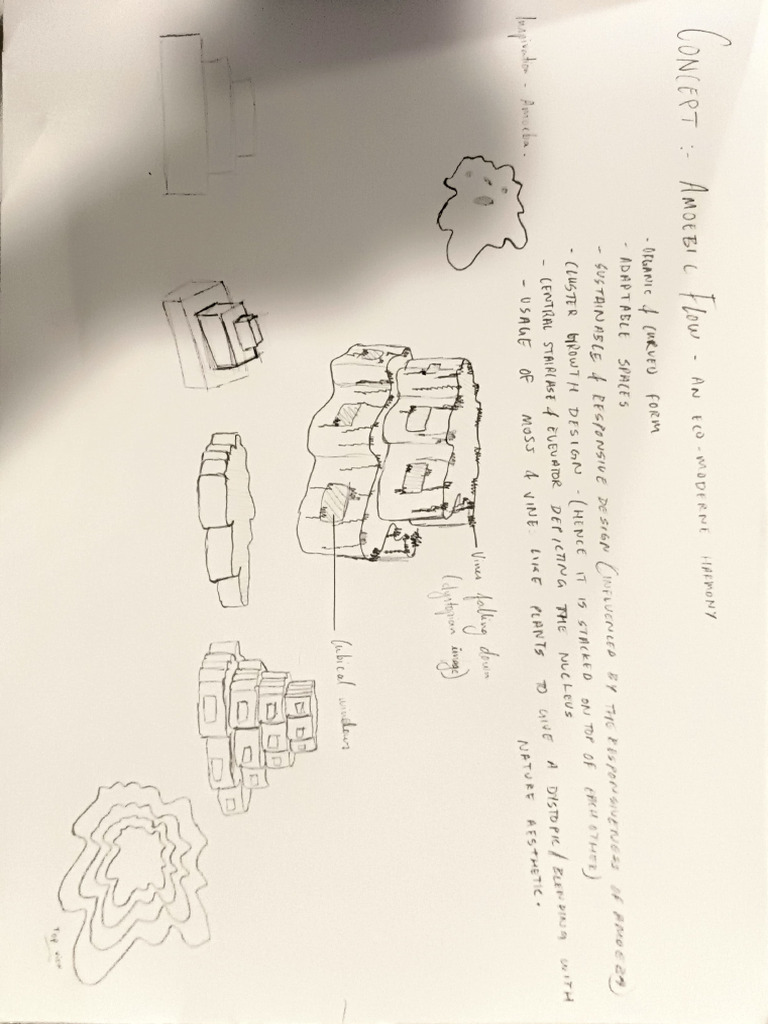 CONCEPT :- AMOEBIC FLOW - AN ECO-MODERNE HARMONY
- ORGANIC & CURVED FORM
- ADAPTABLE SPACES
- SUSTAINABLE & RESPONSIVE DESIGN (INFLUENCED BY THE RESPONSIVENESS OF AMOEBA)
- CLUSTER GROWTH DESIGN - (HENCE IT IS STACKED ON TOP OF EACH OTHER)
- CENTRAL STAIRCASE & ELEVATOR DEPICTING THE NUCLEUS
- USAGE OF MOSS & VINE LIKE PLANTS TO GIVE A DISTOPIC / BLENDING WITH
NATURE AESTHETIC.
Inspiration - Amoeba.
Vines falling down
(dystopian image)
Cubical windows
Top view